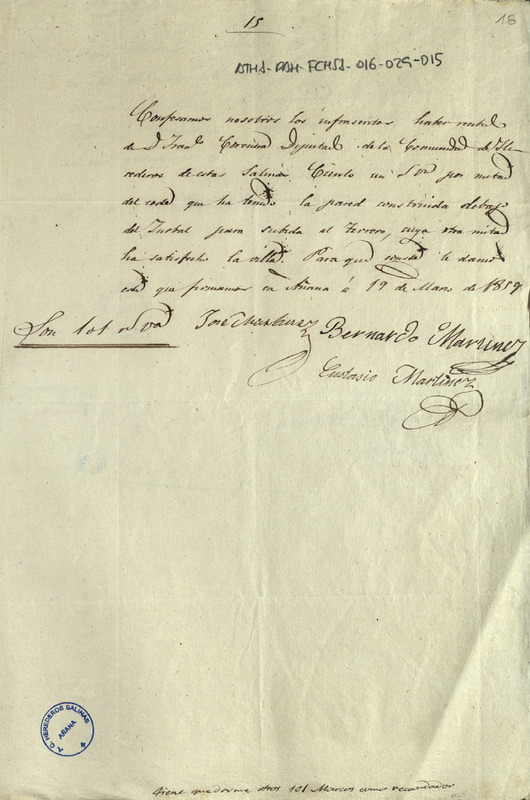 15
18
ATHA-DAH-FCHSA-016-029-015
Confesamos nosotros los infrascritos haber recibido
de D Diputado de la Comunidad de He-
rederos de estas Salinas Ciento un por mitad
del coste que ha tenido la pared construida debajo
del para subida al terrero, cuya otra mitad
ha satisfecho la villa. Para que conste le damos
este que firmamos en Añana á 19 de Marzo de 1859
Son 101 rs von José Martinez Bernardo Martinez
Eustasio Martinez
HEREDEROS SALINAS
AÑANA
tiene que darme otros 101 Marcos como recaudador